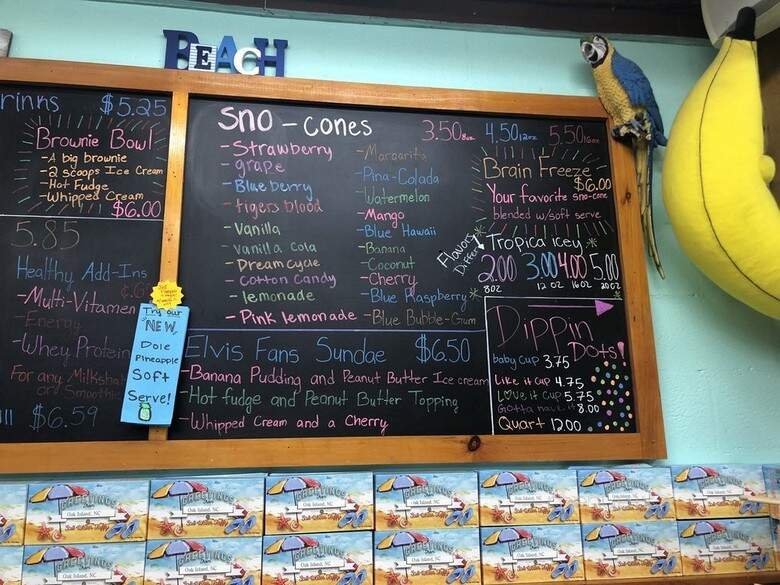 BEACH
rinks $5.25
Brownie Bowl
-A big brownie
-2 scoops Ice Cream
-Hot Fudge
-Whipped Cream
$6.00
5.85
Healthy Add-Ins
-Multi-Vitamen
-Energy
-Whey Protein
For any Milkshake
or Smoothie
$6.59
Try our
"NEW"
Dole
Pineapple
Soft
Serve!
Sno-cones 3.50 8oz. 4.50 12oz 5.50 16oz
-Strawberry
-grape
-Blueberry
-tigers blood
-Vanilla
-Vanilla Cola
-Dreamcycle
-Cotton Candy
-lemonade
-Pink lemonade
-Margarita
-Pina-Colada
-Watermelon
-Mango
-Blue Hawaii
-Banana
-Coconut
-Cherry
-Blue Raspberry
-Blue Bubble-Gum
Brain Freeze
$6.00
Your favorite sno-cone
blended w/soft serve
Flavors
Differ
Tropica icey
2.00 3.00 4.00 5.00
8oz 12 oz 16oz 20oz
Elvis Fans Sundae $6.50
-Banana Pudding and Peanut Butter Ice cream
-Hot fudge and Peanut Butter Topping
-Whipped Cream and a Cherry
Dippin
Dots!
baby cup 3.75
Like it cup 4.75
Love it cup 5.75
Gotta have it 8.00
Quart 12.00
GREETINGS
Oak Island, NC